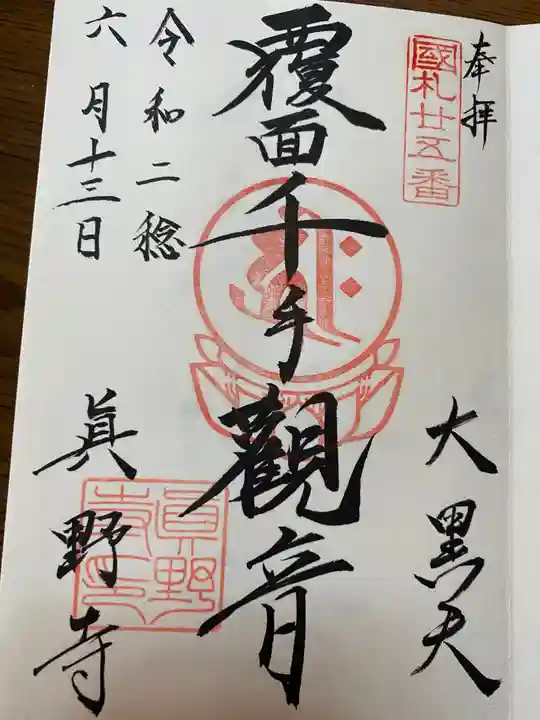 奉拜
國札廿五番
大黑天
覆面千手觀音
令和二稔
六月十三日
眞野寺
眞野寺印